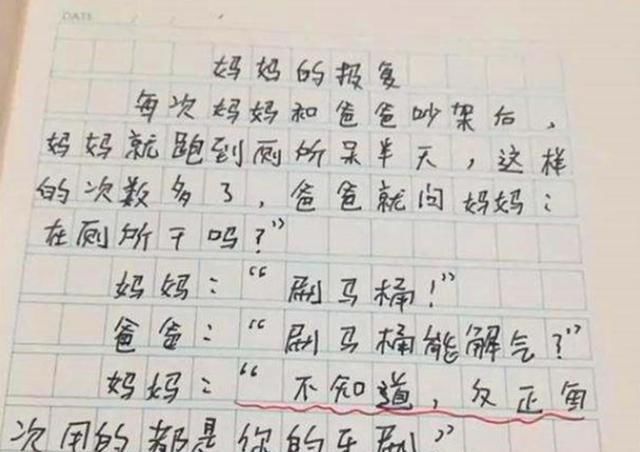 DATE
妈妈的报复
每次妈妈和爸爸吵架后，
妈妈就跑到厕所呆半天，这样
的次数多了，爸爸就问妈妈：
在厕所干吗？”
妈妈：“刷马桶！”
爸爸：“刷马桶能解气？”
妈妈：“不知道，反正每
次用的都是你的牙刷”